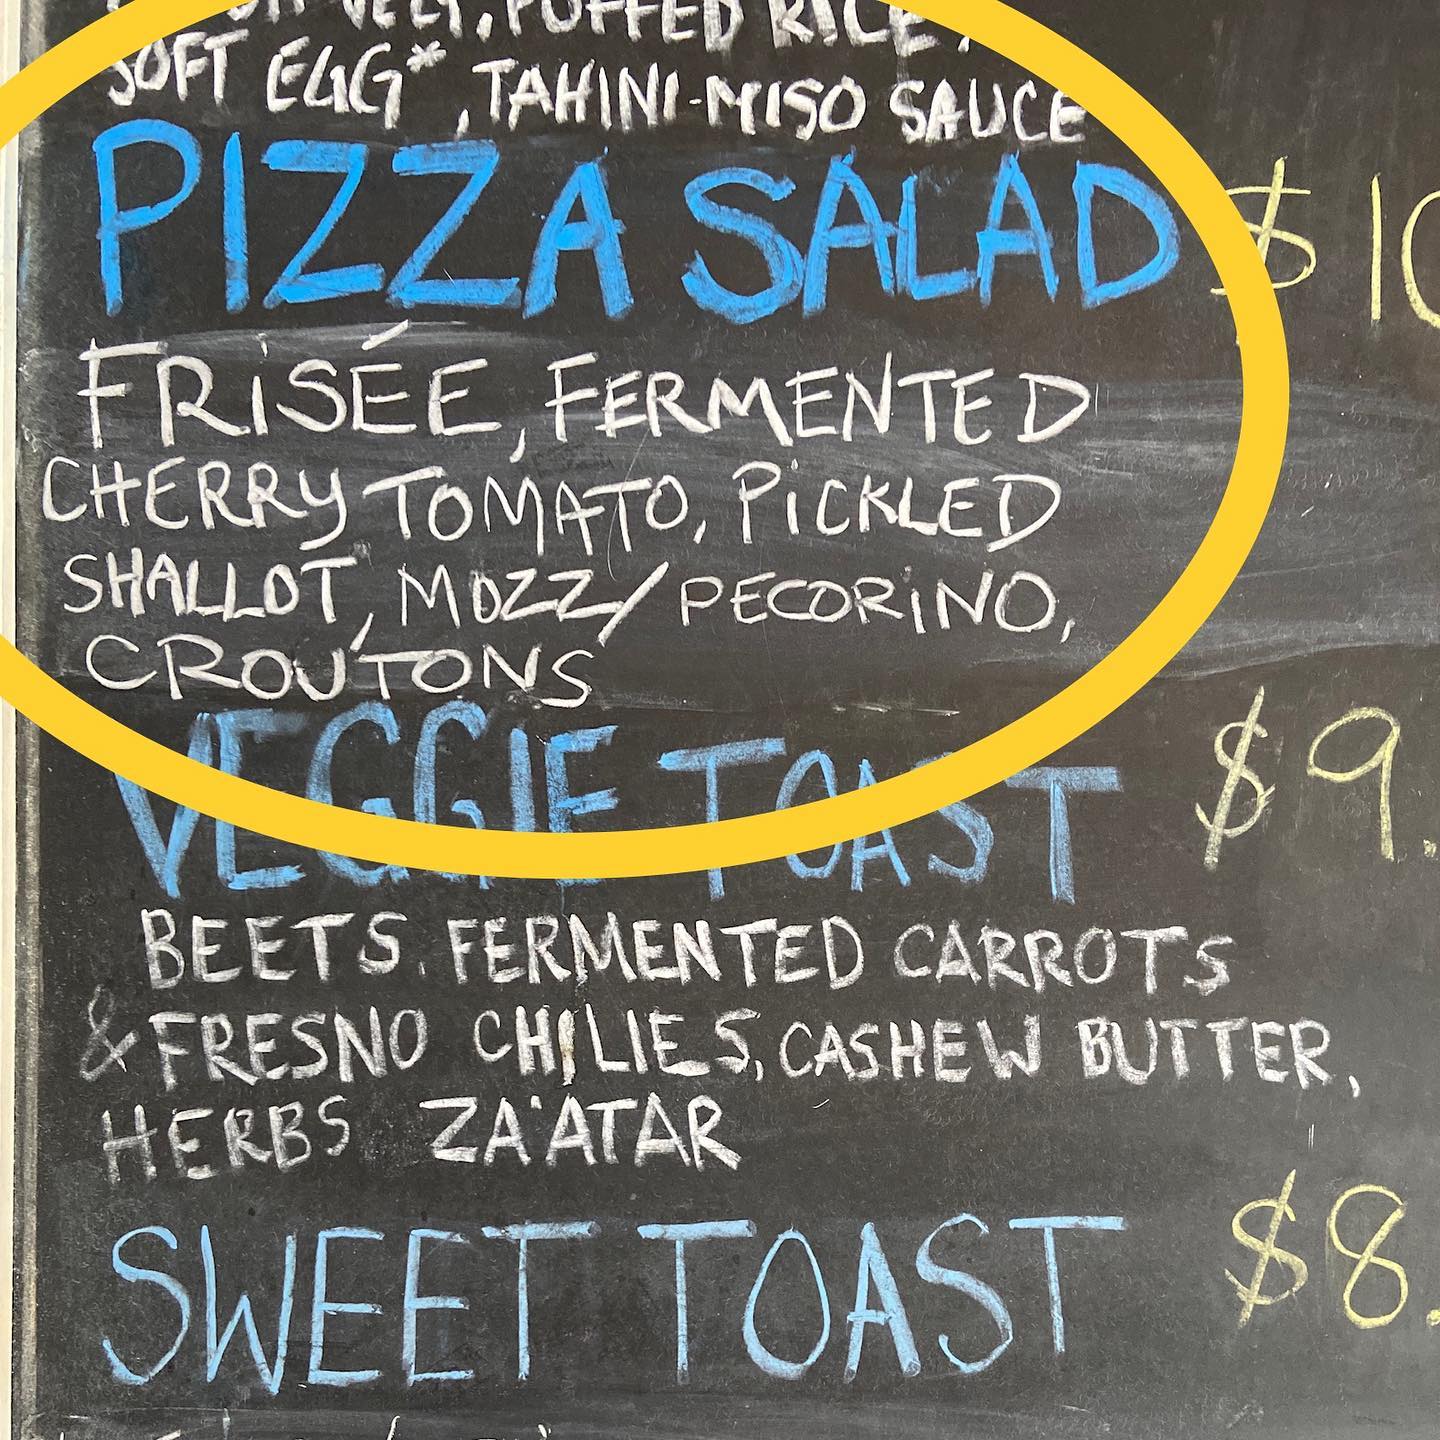 PUFFED RICE,
SOFT EGG*, TAHINI-MISO SAUCE
PIZZA SALAD $10
FRISÉE, FERMENTED
CHERRY TOMATO, PICKLED
SHALLOT, MOZZ/PECORINO,
CROUTONS
VEGGIE TOAST $9.
BEETS, FERMENTED CARROTS
& FRESNO CHILIES, CASHEW BUTTER,
HERBS ZA'ATAR
SWEET TOAST $8.